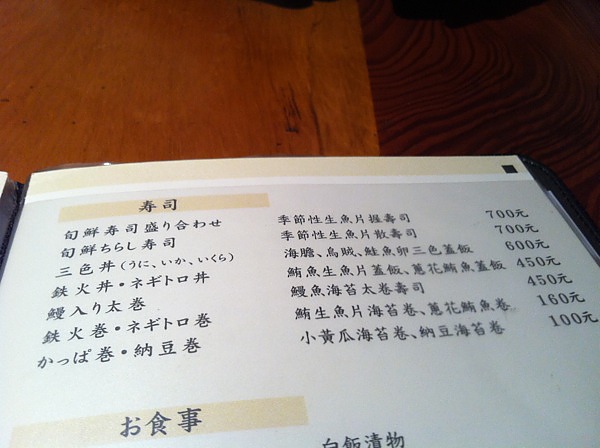 寿司
旬鮮寿司盛り合わせ 季節性生魚片握壽司 700元
旬鮮ちらし寿司 季節性生魚片散壽司 700元
三色丼(うに、いか、いくら) 海膽、烏賊、鮭魚卵三色蓋飯 600元
鉄火丼・ネギトロ丼 鮪魚生魚片蓋飯、蔥花鮪魚蓋飯 450元
鰻入り太巻 鰻魚海苔太卷壽司 450元
鉄火巻・ネギトロ巻 鮪生魚片海苔卷、蔥花鮪魚卷 160元
かっぱ巻・納豆巻 小黃瓜海苔卷、納豆海苔卷 100元
お食事
白飯漬物